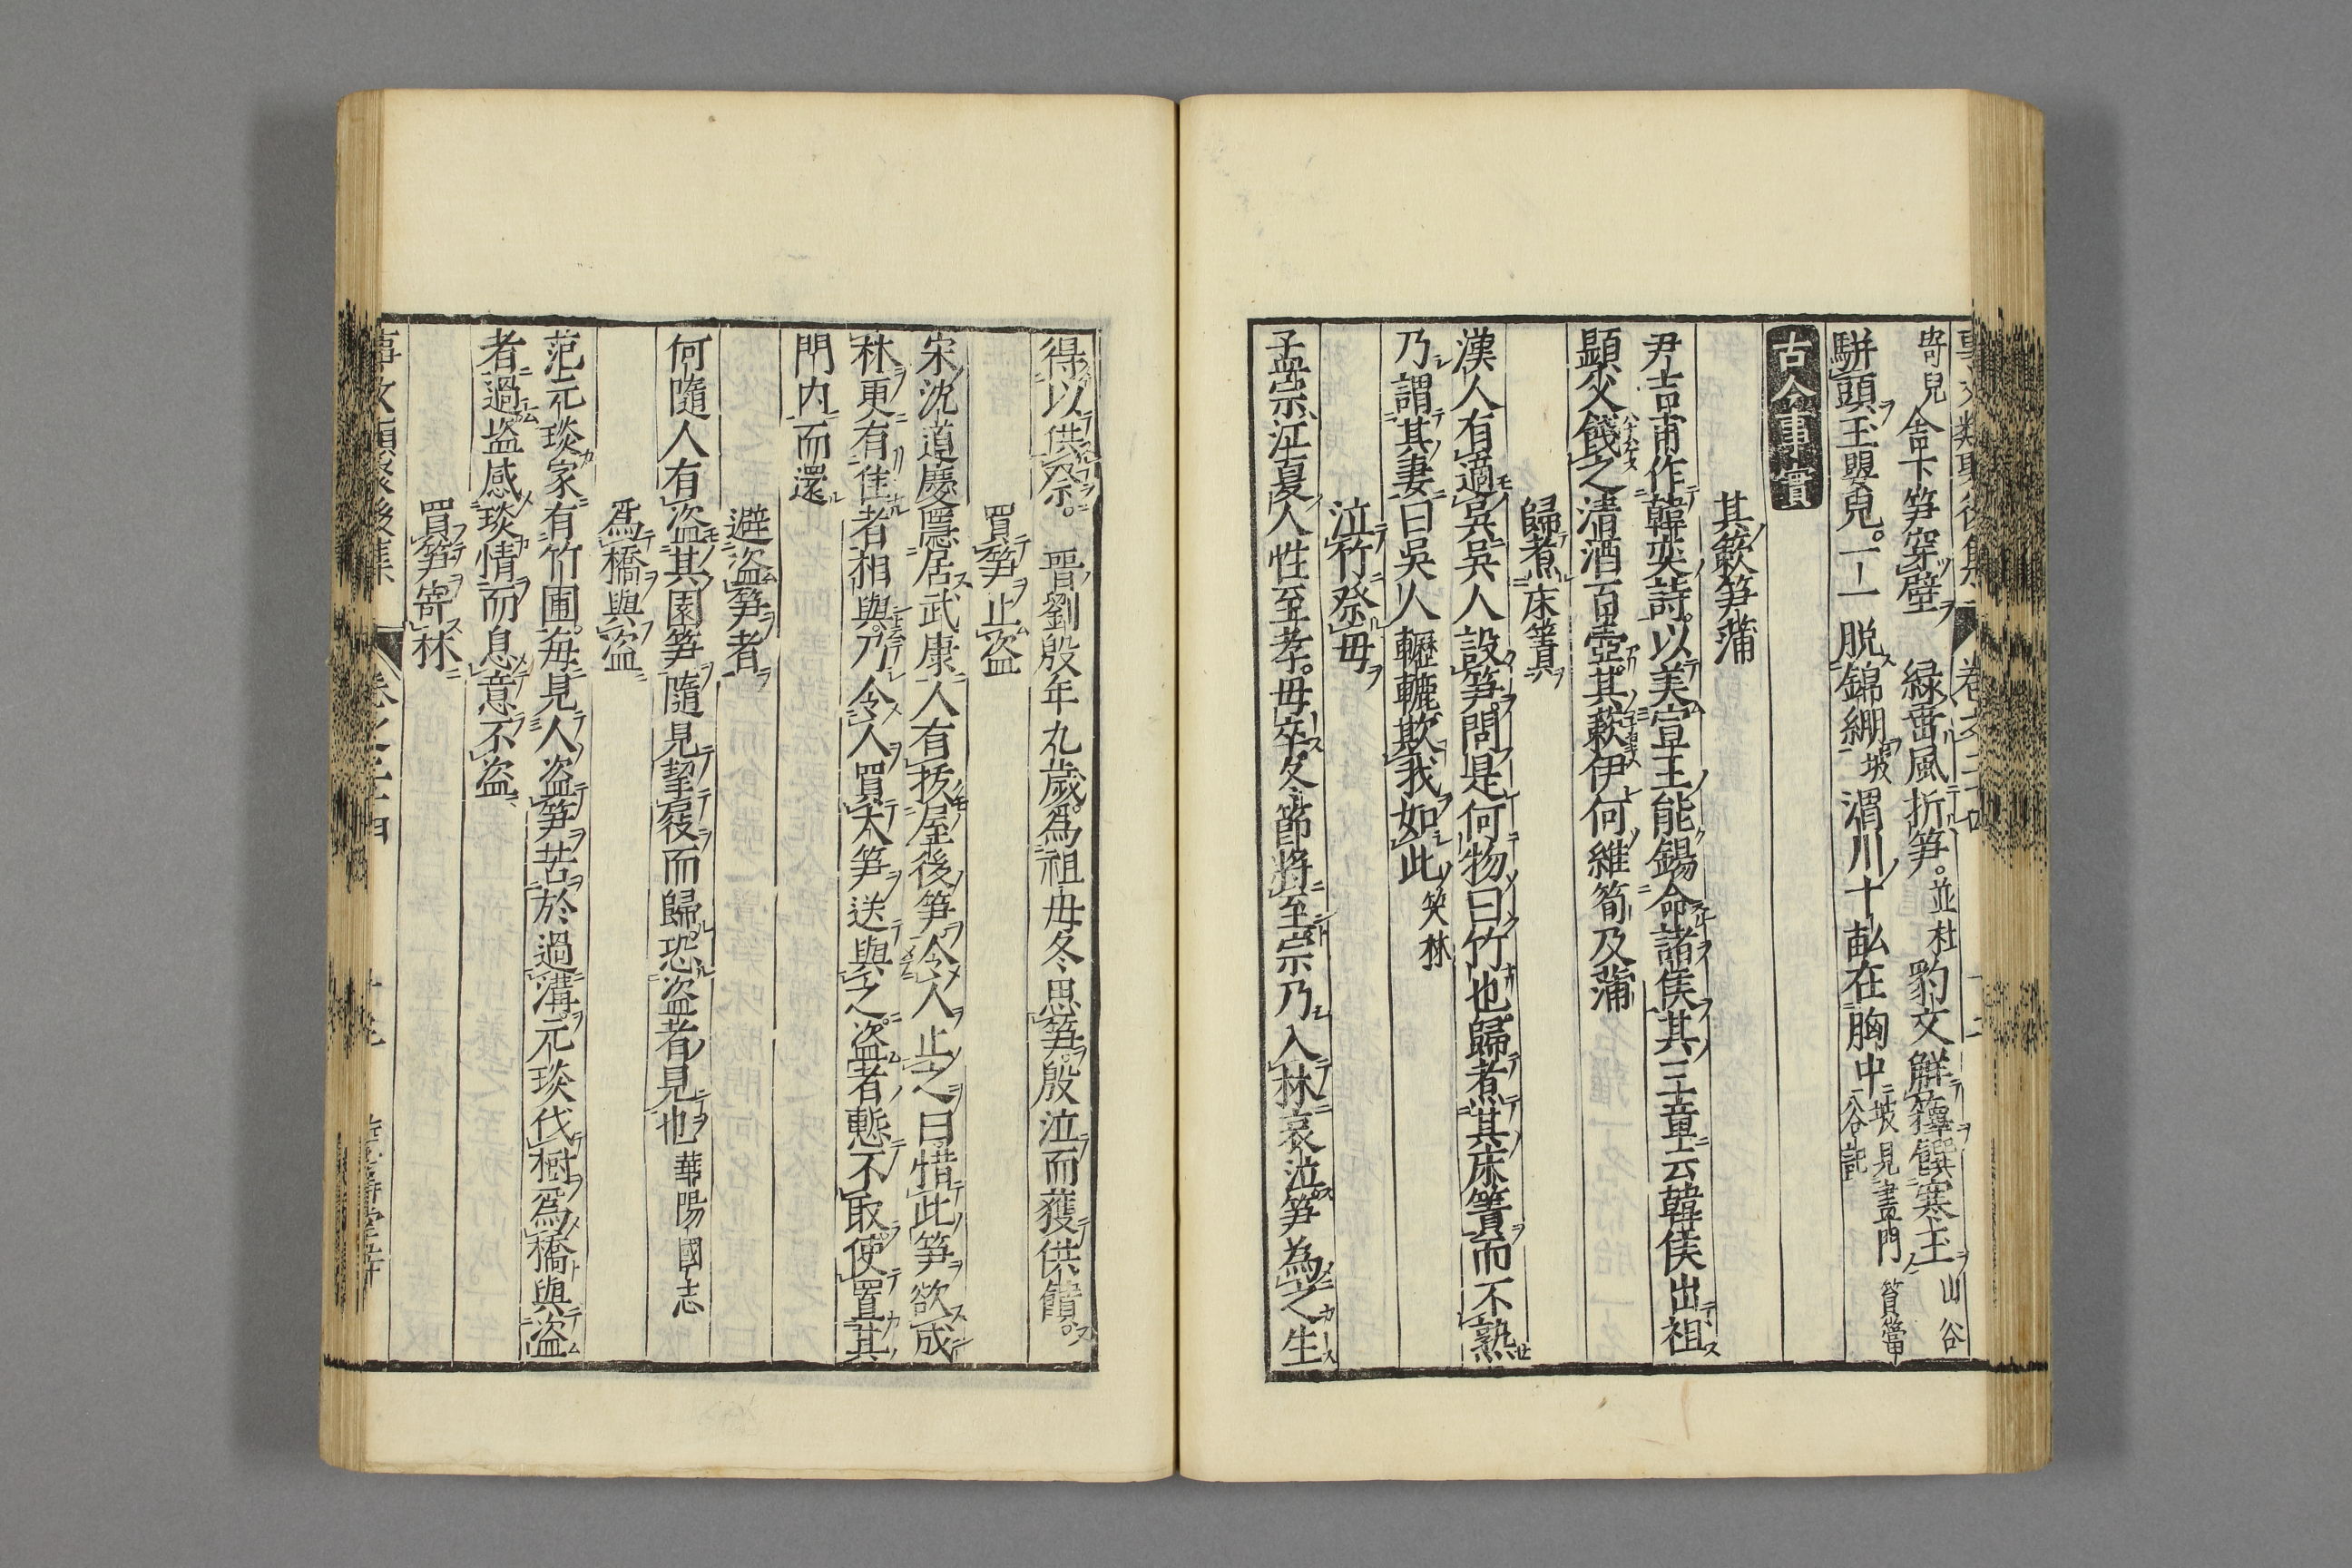 事文類聚後集 卷之二十四
寄兒 舍下笋穿壁 緑垂風折笋。並杜 豹文解籜饌寒玉 山谷
駢頭玉嬰兒。一一脱錦綳 坡 渭川十畝在胸中 坡見畫門篔簹谷記
古今事實
其蔌笋蒲
尹吉甫作韓奕詩。以美宣王能錫命諸侯其三章云韓侯出祖
顯父餞之清酒百壺。其蔌伊何維筍及蒲
歸煮床簀
漢人有適吳吳人設笋。問是何物曰竹也。歸煮其床簀而不熟
乃謂其妻曰吳人轣轆欺我如此 笑林
泣竹祭母
孟宗江夏人性至孝。母卒。冬節將至宗乃入林哀泣笋為之生
得以供祭。 晋劉殷年九歲。爲祖母冬思笋。殷泣而獲供饋。
買笋止盗
宋沈道慶隱居武康人有拔屋後笋令人止之曰惜此笋欲成
林更有佳者相與。乃令人買大笋送與之。盗者慙不取。使置其
門内而還
避盗笋者
何隨人有盗其園笋隨見挈屐而歸。恐盗者見也 華陽國志
爲橋與盗
范元琰家有竹圃。每見人盗笋苦於過溝。元琰伐樹爲橋與盗
者過盗感琰情而息意不盗
買笋寄林
事文類聚後集 卷之二十四